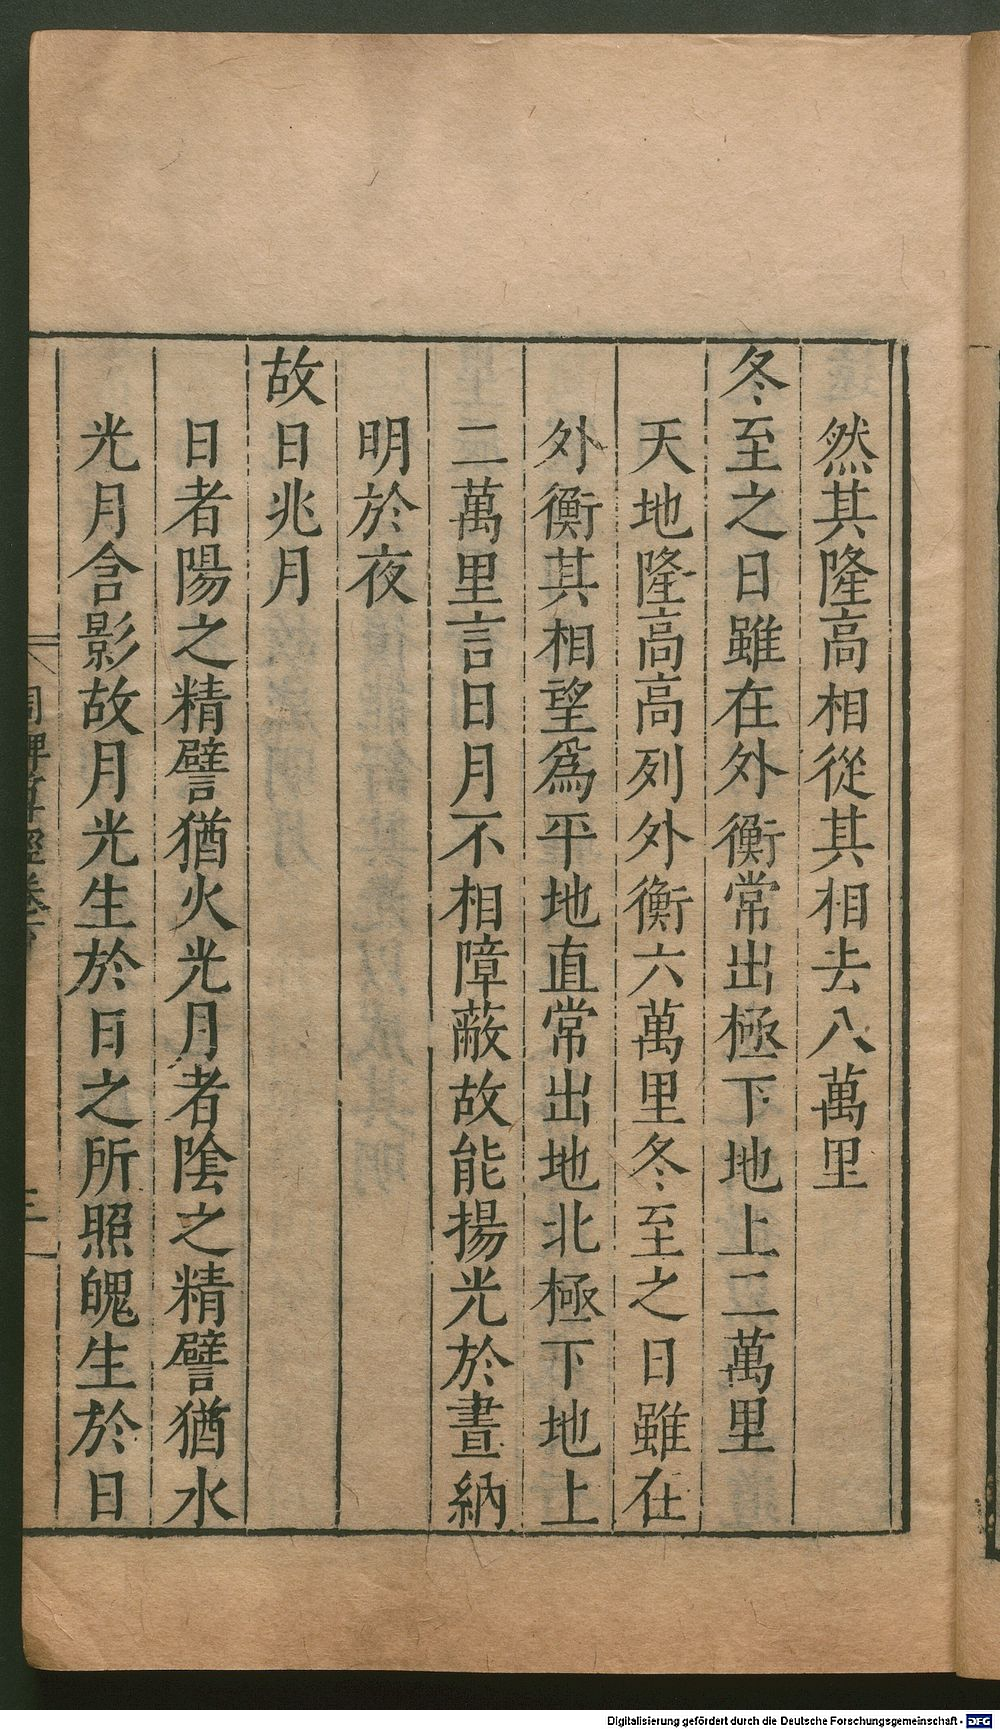 然其隆高相從其相去八萬里
冬至之日雖在外衡常出極下地上二萬里
天地隆高高列外衡六萬里冬至之日雖在
外衡其相望爲平地直常出地北極下地上
二萬里言日月不相障蔽故能揚光於晝納
明於夜
故日兆月
日者陽之精譬猶火光月者陰之精譬猶水
光月含影故月光生於日之所照魄生於日
周髀算經卷下
Digitalisierung gefördert durch die Deutsche Forschungsgemeinschaft - DFG